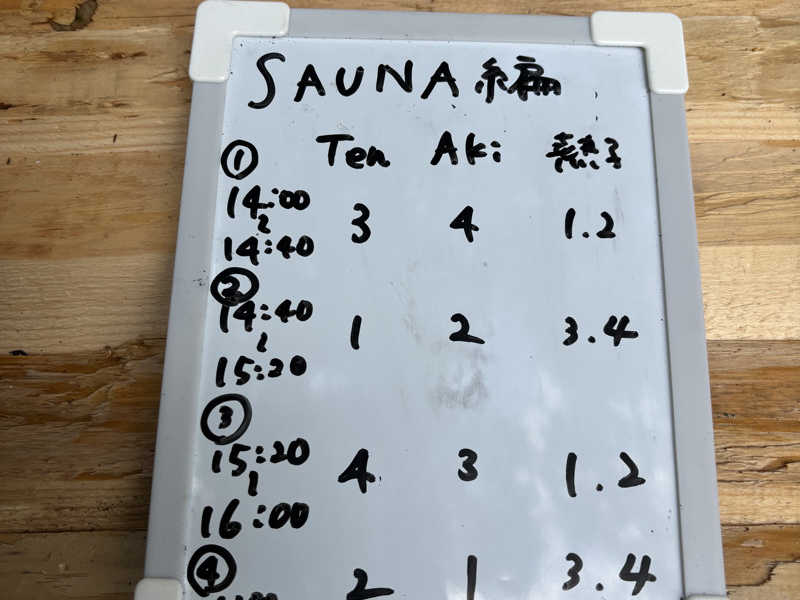 SAUNA編
① Ten Aki 熱子
14:00
〜
14:40 3 4 1.2
②
14:40
〜
15:20 1 2 3.4
③
15:20
〜
16:00 4 3 1.2
④
2 1 3.4